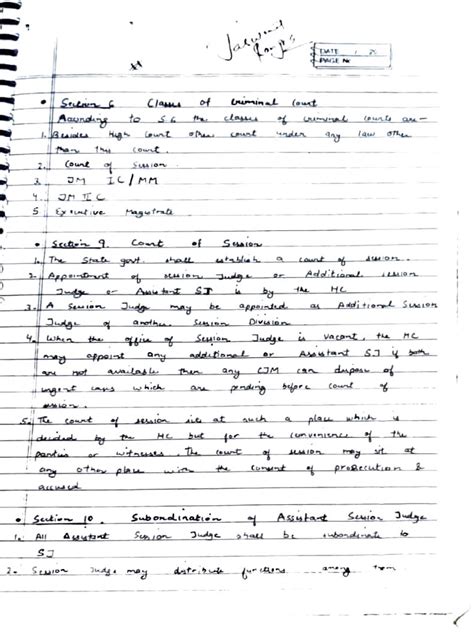 DATE / 20
PAGE No
• Section 6 Classes of Criminal Court
According to S.6 the classes of criminal courts are -
1. Besides High Court other court under any law other
than this court.
2. Court of Session
3. JM IC/MM
4. JM IIC
5 Executive Magistrate
• Section 9. Court of Session
1. The State govt. shall establish a court of session.
2. Appointment of session Judge or Additional session
Judge or Assistant SJ is by the HC
3. A Session Judge may be appointed as Additional Session
Judge of another Session Division
4. When the office of Session Judge is vacant, the HC
may appoint any additional or Assistant SJ if both
are not available then any CJM can dispose of
urgent cases which are pending before court of
session.
5. The court of session sits at such a place which is
decided by the HC but for the convenience of the
parties or witnesses. The court of session may sit at
any other place with the consent of prosecution &
accused
• Section 10. Subordination of Assistant Session Judge
1. All Assistant Session Judge shall be subordinate to
SJ
2. Session Judge may distribute functions among them